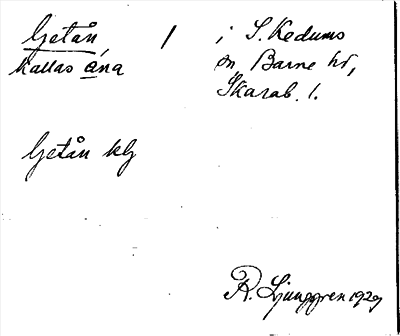 Getån / i S. Kedums
kallas ána sn, Barne hd,
Skarab. l.
Getån
R. Ljunggren 1929